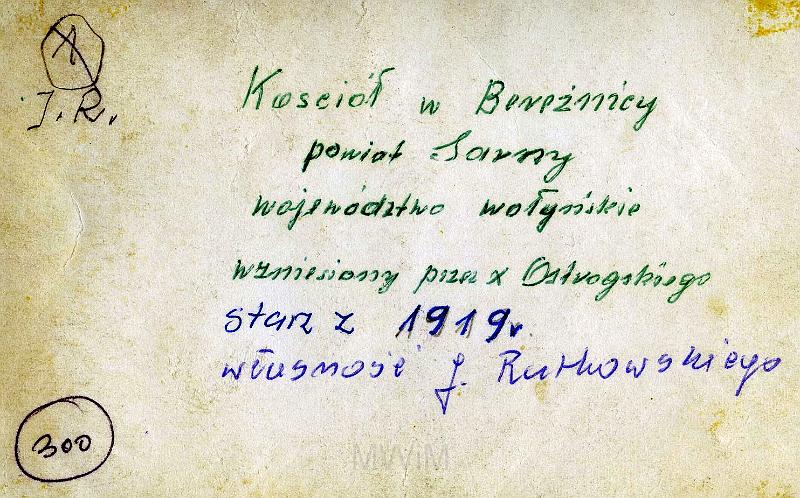 J. R.
Kościół w Bereźnicy
powiat Sarny
województwo wołyńskie
wzniesiony przez x Ostrogskiego
starz z 1919r.
własność J. Rutkowskiego
300
MWiM